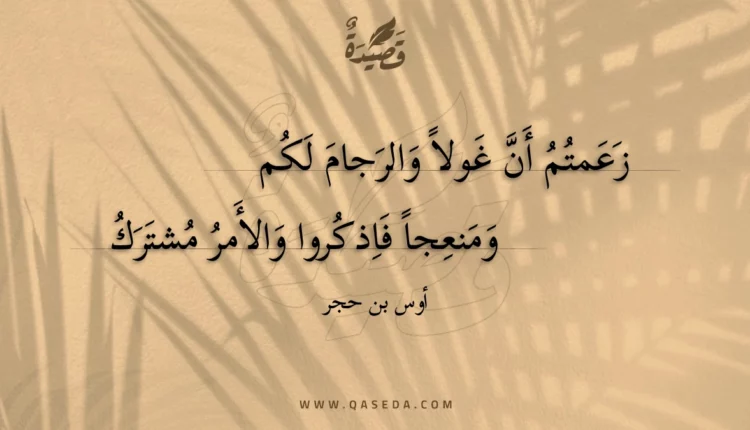 قَصِيْدَةٌ
زَعَمتُمُ أَنَّ غَولاً وَالرَجامَ لَكُم
وَمَنعِجاً فَاِذكُروا وَالأَمرُ مُشتَرَكُ
أوس بن حجر
WWW.QASEDA.COM